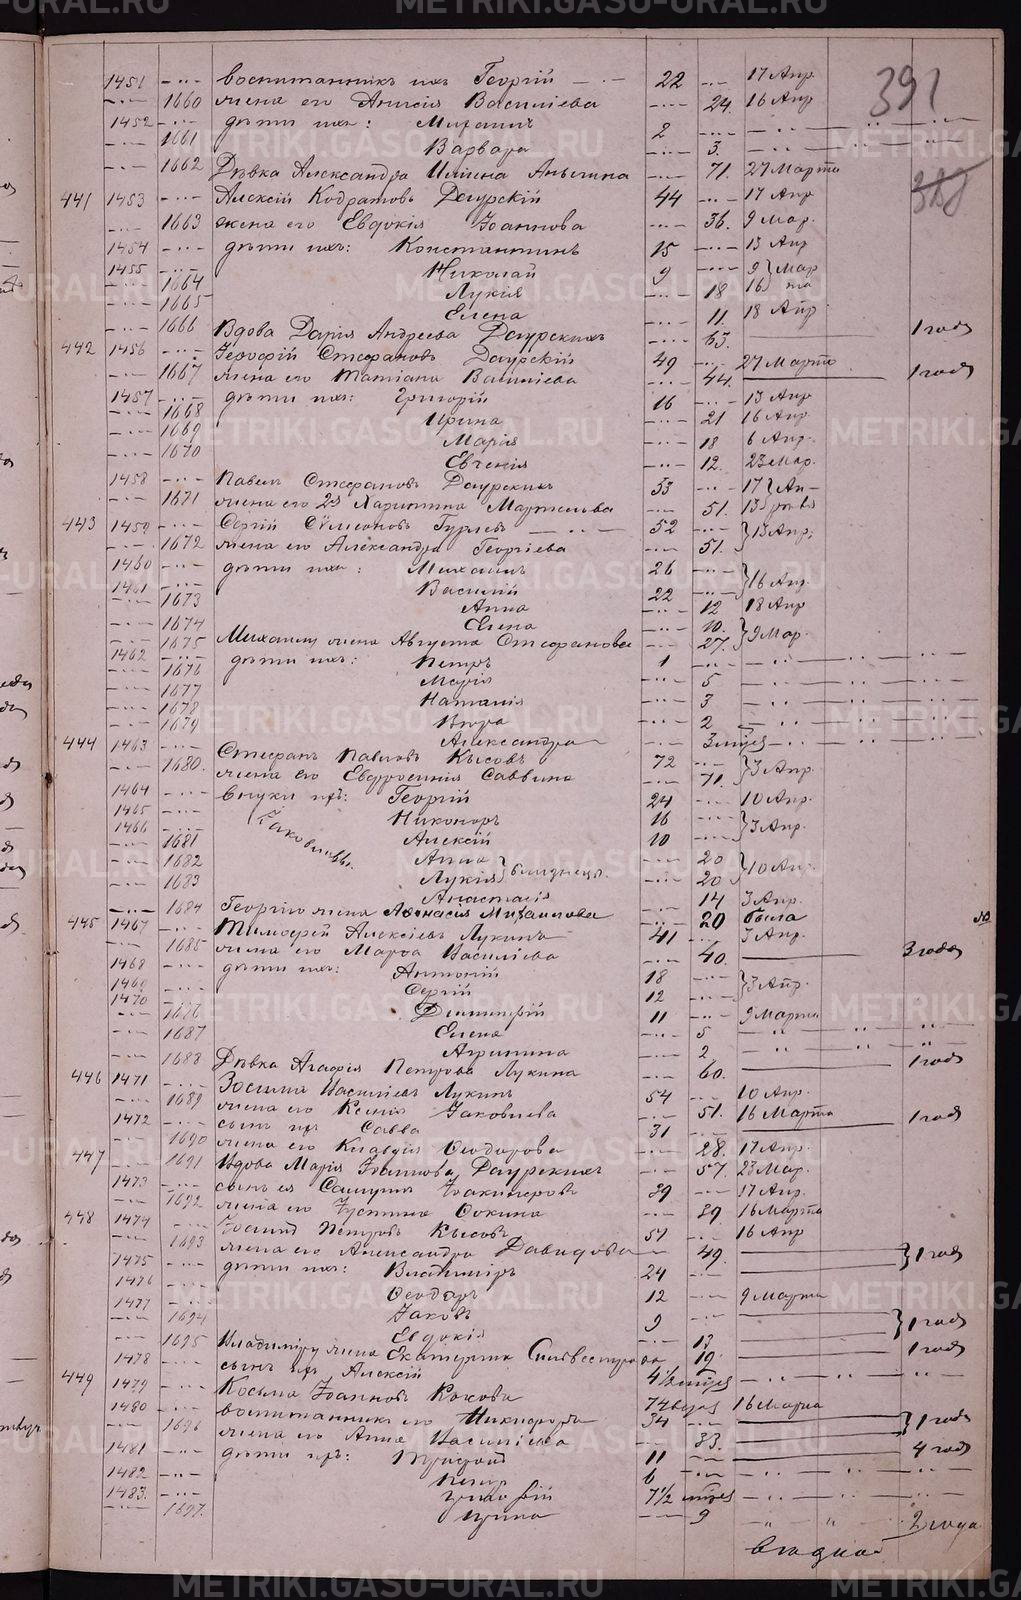 391
388
1451 воспитанникъ ихъ Георгій 22 17 Апр.
1660 жена его Анисія Василіева 24. 16 Апр
1452 дѣти ихъ: Михаилъ 2
1661 Варвара 3.
1662 Дѣвка Александра Ильина 71. 27 Марта
441 1453 Алексій Кодратовъ Даурскій 44 17 Апр
1663 жена его Евдокія Іоаннова 36. 9 Мар.
1454 дѣти ихъ: Константинъ 15 13 Апр
1455 Николай 9 9 Мар
1664 Лукія 18 16 та
1665 Елена 11. 18 Апр
1666 Вдова Дарія Андреева Даурскихъ 63. 1 годъ
442 1456 Іерофій Стефановъ Даурскій 49 27 Марта
1667 жена его Татіана Василіева 44. 1 годъ
1457 дѣти ихъ: Григорій 16 13 Апр
1668 Ирина 21 16 Апр.
1669 Марія 18 6 Апр.
1670 Евгенія 12. 23 Мар.
1458 Павелъ Стефановъ Даурскихъ 53 17 Ап-
1671 жена его 2я Харитина 51. 13 рѣля
443 1459 Сергій Симеоновъ Гурьевъ 52 13 Апр.
1672 жена его Александра Георгіева 51.
1460 дѣти ихъ: Михаилъ 26 16 Апр.
1461 Василій 22
1673 Анна 12 18 Апр
1674 Елена 10. 9 Мар.
1675 Михаилу жена Августа Стефанова 27.
1462 дѣти ихъ: Петръ 1
1676 Марія 5
1677 Наталія 3
1678 Вѣра 2
1679 Александра 3 мѣс
444 1463 Стефанъ Павловъ Кысовъ 72 3 Апр.
1680. жена его Евфросинія Саввина 71.
1464 внуки ихъ: Георгій 24 10 Апр.
1465 Никоноръ 16 3 Апр.
1466 (Яковлевы. Алексій 10
1681 Анна 20 10 Апр.
1682 Лукія близнецы. 20
1683 Анастасія 14 3 Апр.
1684 Георгію жена Аѳанасія Михаилова 20 была
445 1467 Тимофей Алексіевъ Лукинъ 41 3 Апр.
1685 жена его Марѳа Василіева 40. 3 года
1468 дѣти ихъ: Антоній 18 3 Апр.
1469 Сергій 12
1470 Димитрій 11 9 Марта
1686 Елена 5
1687 Агрипина 2
1688 Дѣвка Агафія Петрова Лукина 60. 1 годъ
446 1471 Зосима Василіевъ Лукинъ 54 10 Апр.
1689 жена его Ксенія Іаковлева 51. 16 Марта
1472 сынъ ихъ Савва 31 1 годъ
1690 жена его Клавдія Ѳеодорова 28. 17 Апр.
447 1691 Вдова Марія Іоаннова Даурскихъ 57. 23 Мар.
1473 сынъ ея Іоакимовъ 39 17 Апр.
1692 жена его Іустина 39 16 Марта
448 1474 Іосифъ Петровъ Кысовъ 51 16 Апр
1693 жена его Александра Давидова 49. 1 годъ
1475 дѣти ихъ: Владиміръ 24
1476 Ѳеодоръ 12 9 Марта
1477 Іаковъ 9 1 годъ
1694 Евдокія 17
1695 Владиміру жена Екатерина Силвестрова 19. 1 годъ
1478 сынъ ихъ Алексій 4 1/2 мѣс
449 1479 Косьма Іоанновъ 74 16 Марта
1480 воспитанникъ его Никифоръ 34 1 годъ
1696 жена его Анна Василіева 33.
1481 дѣти ихъ: 11 4 годъ
1482 Петръ 6
1483. 7 1/2 мѣс
1697. Ирина 9 2 года